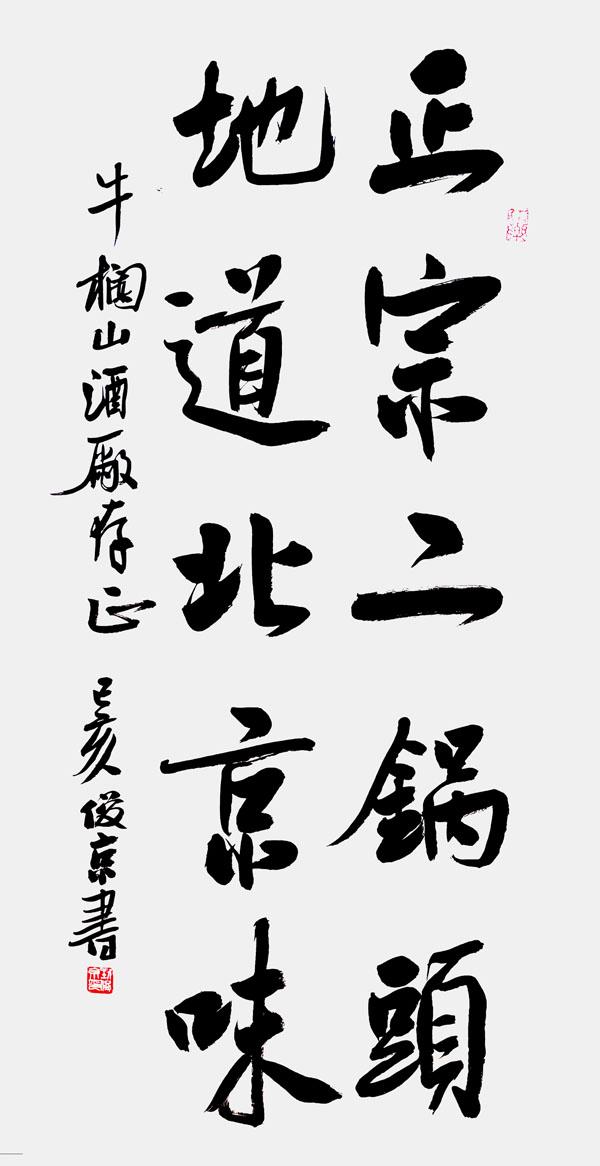 正宗二鍋頭
地道北京味
牛欄山酒厰存正 己亥 俊京書